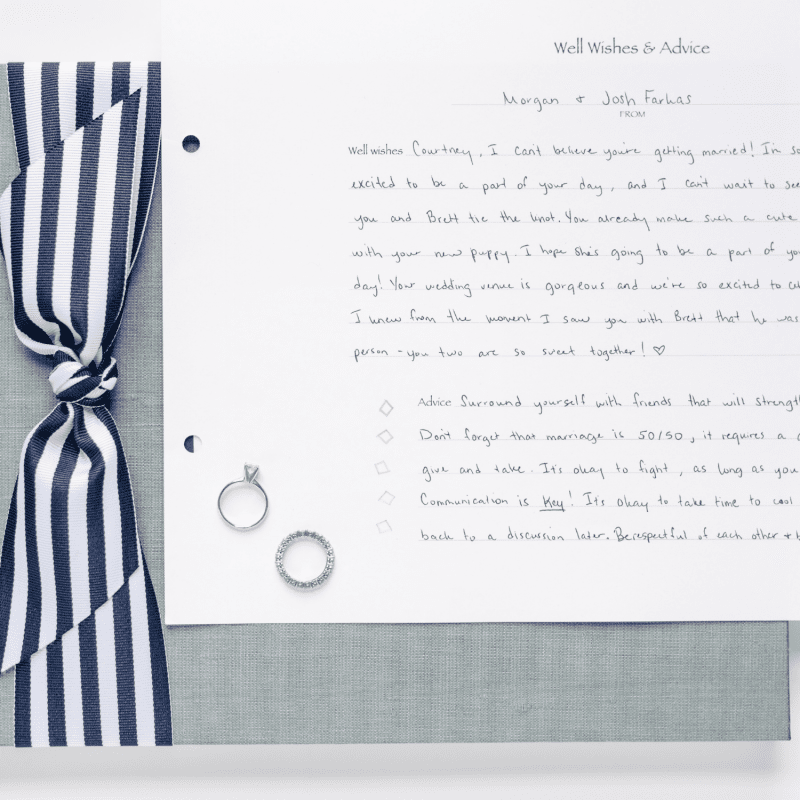 Well Wishes & Advice
Morgan & Josh Farkas
FROM
Well wishes Courtney, I can't believe you're getting married! I'm so
excited to be a part of your day, and I can't wait to see
you and Brett tie the knot. You already make such a cute
with your new puppy. I hope she's going to be a part of
day! Your wedding venue is gorgeous and we're so excited to
I knew from the moment I saw you with Brett that he was
person - you two are so sweet together! ♡
Advice Surround yourself with friends that will
Don't forget that marriage is 50/50, it requires a
give and take. It's okay to fight, as long as you
Communication is Key! It's okay to take time to cool
back to a discussion later. Be respectful of each other +